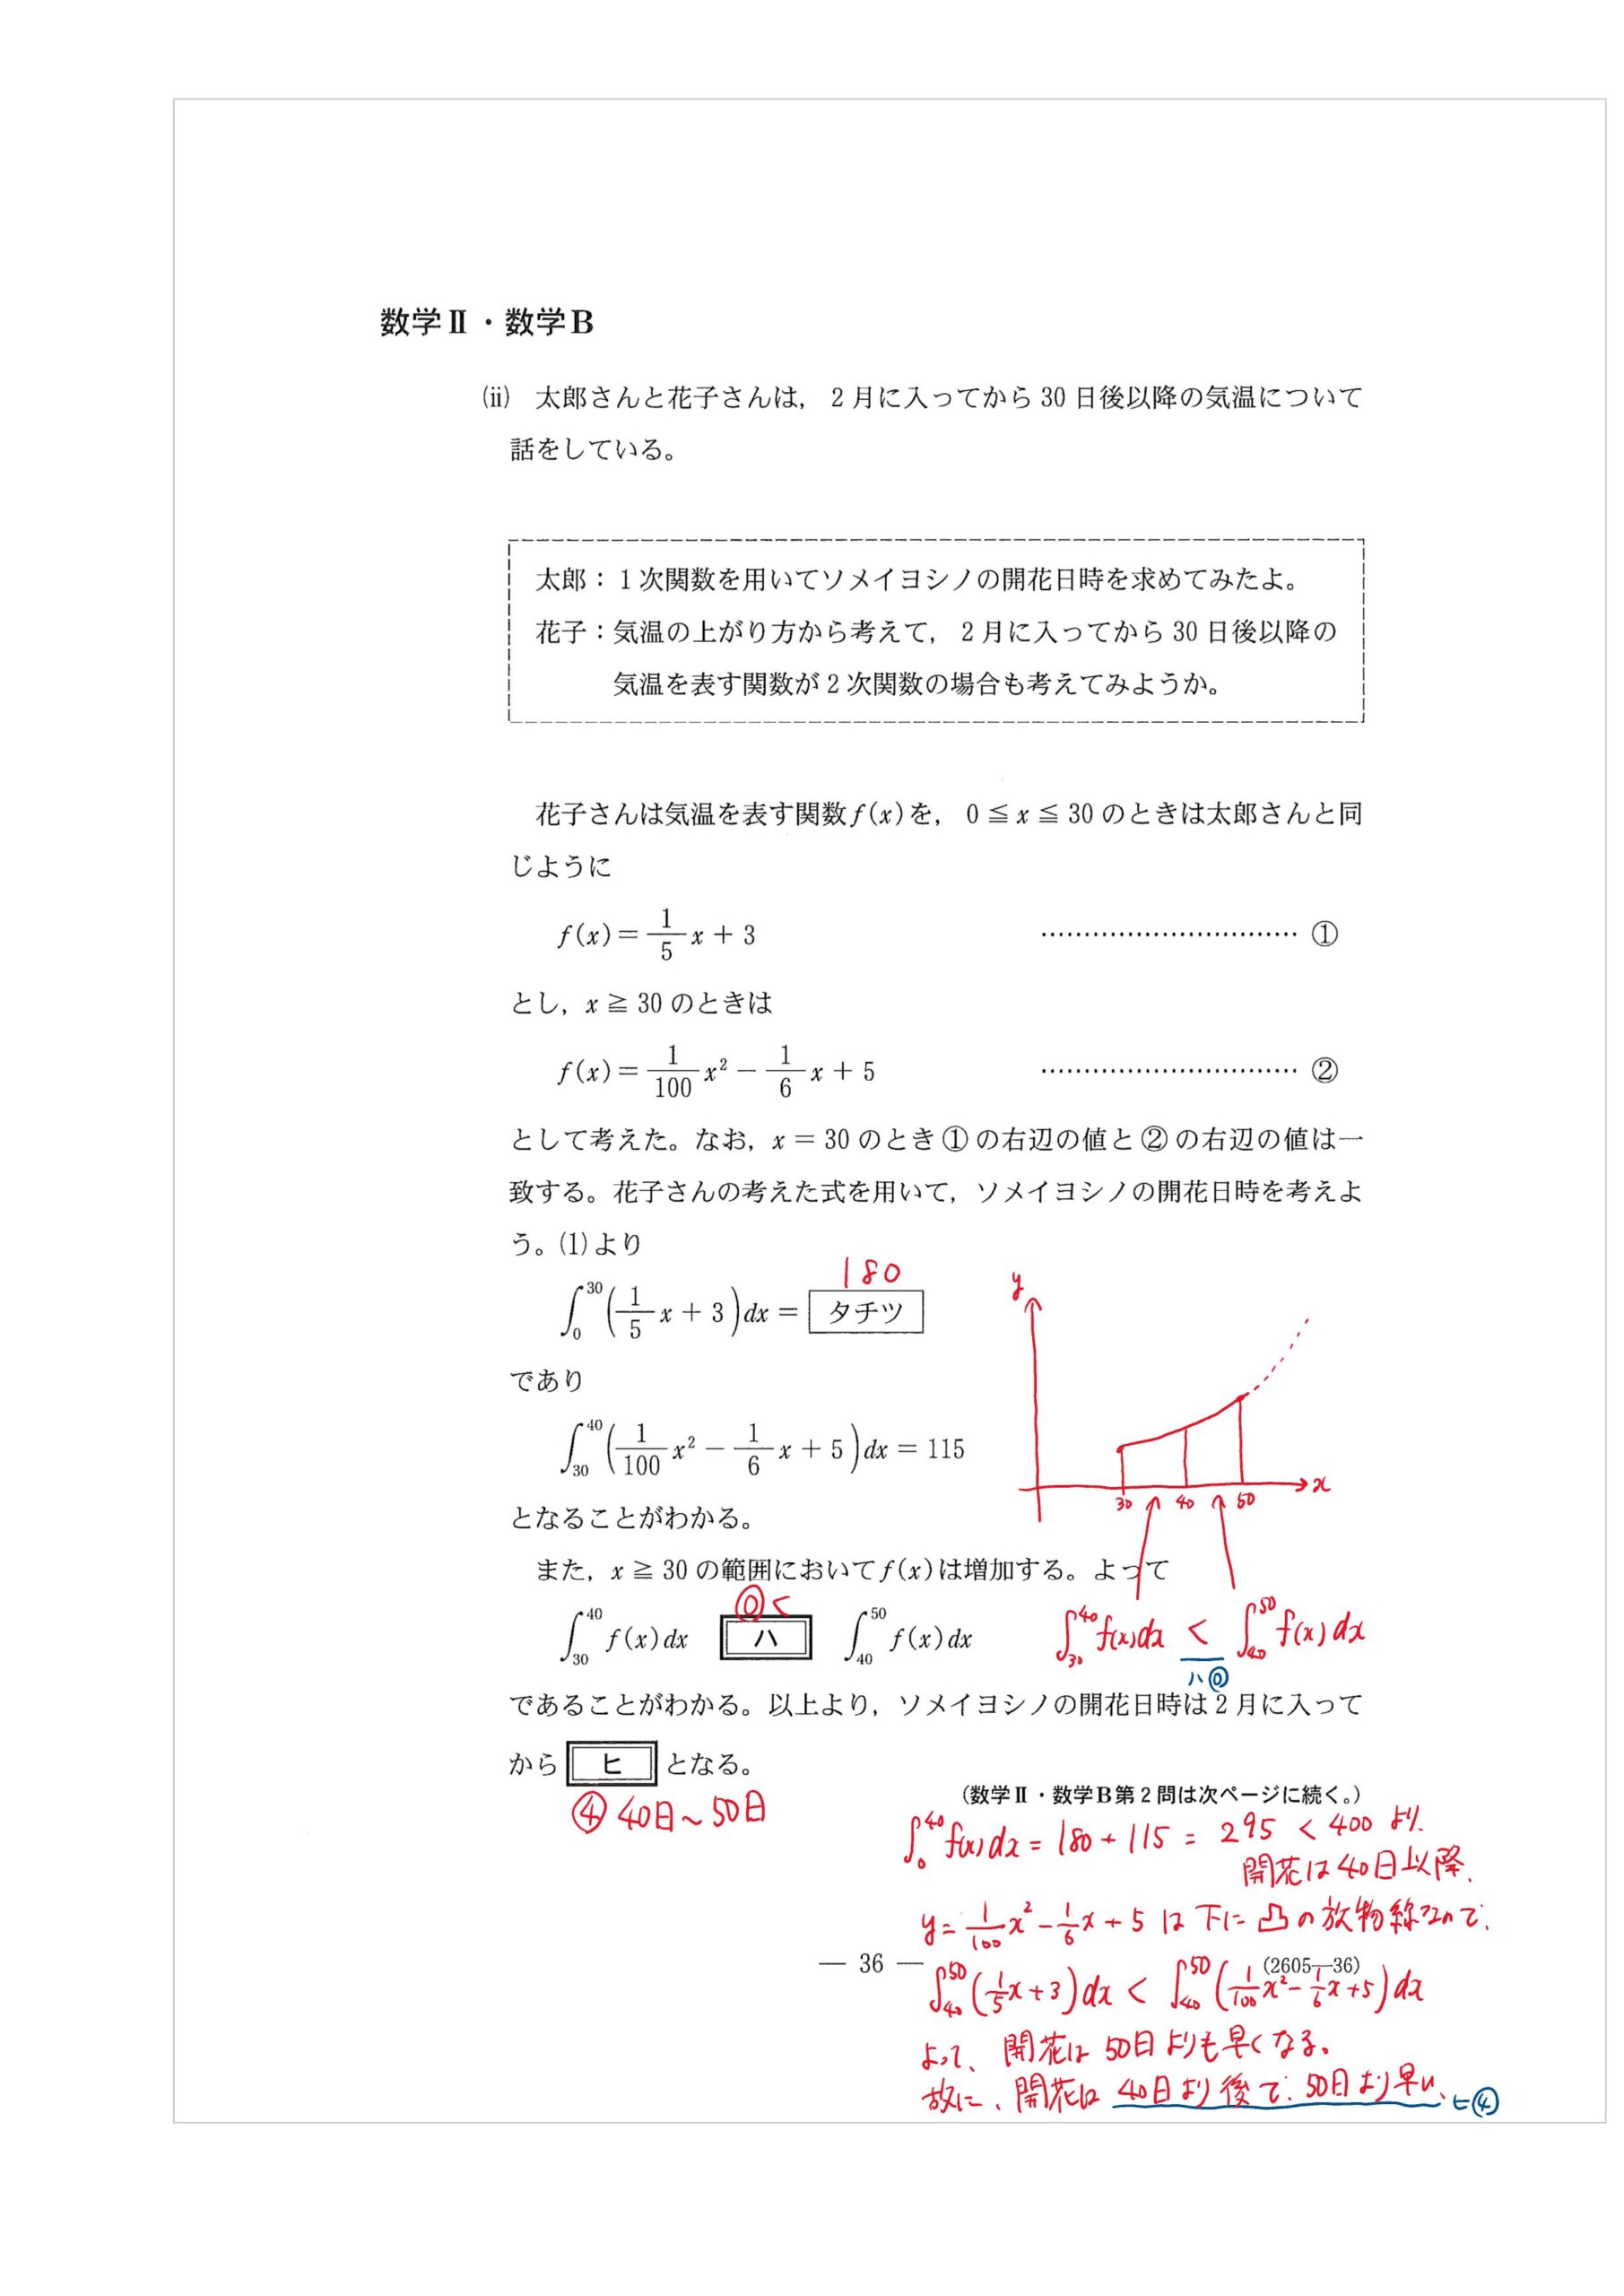 数学Ⅱ・数学B
(ii) 太郎さんと花子さんは，2月に入ってから30日後以降の気温について
話をしている。
太郎：1次関数を用いてソメイヨシノの開花日時を求めてみたよ。
花子：気温の上がり方から考えて，2月に入ってから30日後以降の
気温を表す関数が2次関数の場合も考えてみようか。
花子さんは気温を表す関数f(x)を，0≦x≦30のときは太郎さんと同
じように
f(x)=1/5 x+3 ………………………… ①
とし，x≧30のときは
f(x)=1/100 x²−1/6 x+5 ………………………… ②
として考えた。なお，x=30のとき①の右辺の値と②の右辺の値は一
致する。花子さんの考えた式を用いて，ソメイヨシノの開花日時を考えよ
う。(1)より
180
∫₀³⁰(1/5 x+3)dx= タチツ
y
であり
∫₃₀⁴⁰(1/100 x²−1/6 x+5)dx=115
30 40 50 x
となることがわかる。
また，x≧30の範囲においてf(x)は増加する。よって
⓪<
∫₃₀⁴⁰f(x)dx ハ ∫₄₀⁵⁰f(x)dx
∫₃₀⁴⁰f(x)dx < ∫₄₀⁵⁰f(x)dx
ハ⓪
であることがわかる。以上より，ソメイヨシノの開花日時は2月に入って
から ヒ となる。
④ 40日～50日
(数学Ⅱ・数学B第2問は次ページに続く。)
∫₀⁴⁰f(x)dx=180+115=295<400より、
開花は40日以降、
y=1/100 x²−1/6 x+5は下に凸の放物線なので、
— 36 —
(2605—36)
∫₄₀⁵⁰(1/5 x+3)dx<∫₄₀⁵⁰(1/100 x²−1/6 x+5)dx
よって、開花は50日よりも早くなる。
故に、開花は40日より後で、50日より早い、ヒ④